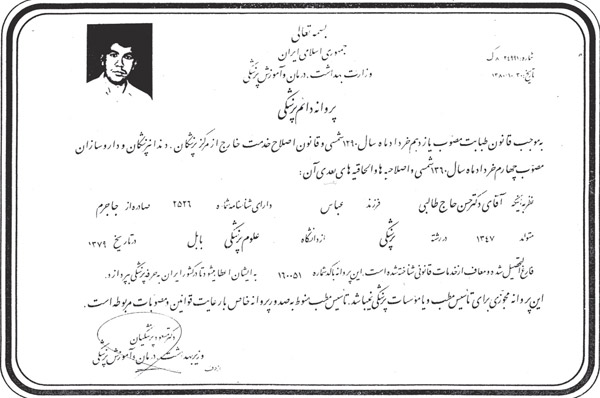 بسمه تعالی
جمهوری اسلامی ایران
وزارت بهداشت، درمان و آموزش پزشکی
شماره: ۸۰۲۴۶۹۱ ک
تاریخ: ۱۳۸۰،۱۰،۳۰
پروانه دائم پزشکی
به موجب قانون طبابت مصوب یازدهم خردادماه سال ۱۲۹۰ شمسی و قانون اصلاح خدمت خارج از مرکز پزشکان، دندانپزشکان و داروسازان
مصوب چهارم خردادماه سال ۱۳۶۰ شمسی و اصلاحیه ها و الحاقیه های بعدی آن:
نظر به اینکه آقای دکتر حسن حاج طالبی فرزند عباس دارای شناسنامه شماره ۲۵۲۶ صادره از جاجرم
متولد ۱۳۴۷ در رشته پزشکی از دانشگاه علوم پزشکی بابل در تاریخ ۱۳۷۹
فارغ التحصیل شده و معاف از خدمات قانونی شناخته شده است. این پروانه با کد شماره ۱۶۰۰۵۱ به ایشان اعطا میشود تا در کشور ایران به حرفه پزشکی بپردازد.
این پروانه مجوزی برای تأسیس مطب و یا مؤسسات پزشکی نمیباشد. تأسیس مطب منوط به صدور پروانه خاص با رعایت قوانین و مصوبات مربوطه است.
دکتر مسعود پزشکیان
وزیر بهداشت، درمان و آموزش پزشکی